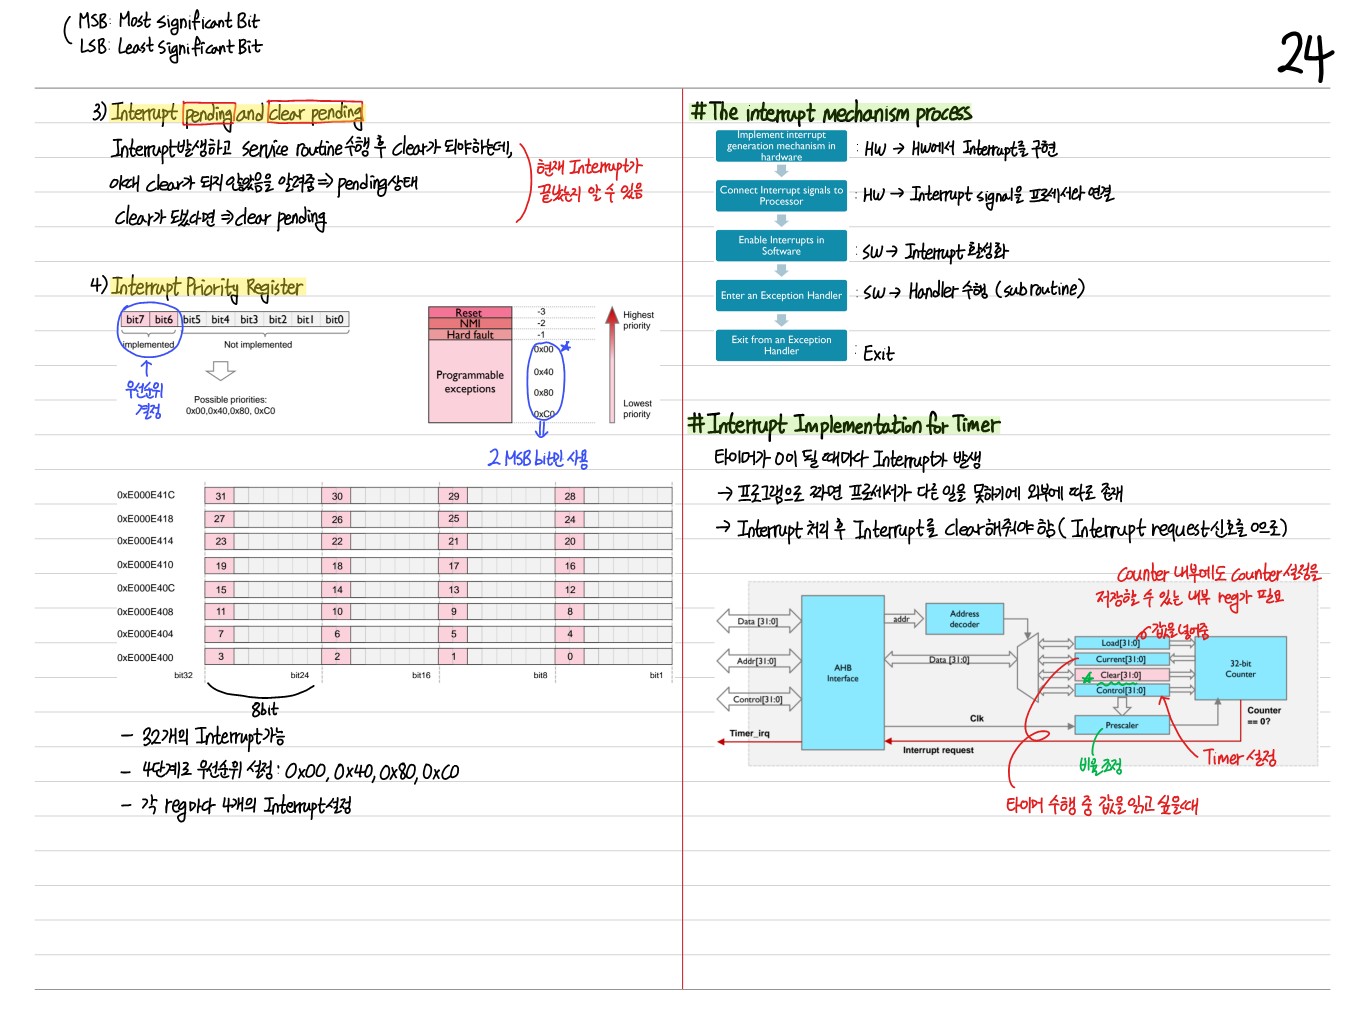 MSB: Most Significant Bit
LSB: Least Significant Bit
24
3) Interrupt pending and clear pending
Interrupt발생하고 service routine 수행 후 clear가 되야하는데,
이때 clear가 되지 않았음을 알려줌 ⇒ pending상태
clear가 됬다면 ⇒ clear pending
현재 Interrupt가
끝났는지 알 수 있음
4) Interrupt Priority Register
bit7 bit6 bit5 bit4 bit3 bit2 bit1 bit0
implemented Not implemented
우선순위
결정
Possible priorities:
0x00,0x40,0x80, 0xC0
Reset -3
NMI -2
Hard fault -1
Programmable
exceptions
0x00
0x40
0x80
0xC0
Highest
priority
Lowest
priority
2 MSB bit만 사용
0xE000E41C 31 30 29 28
0xE000E418 27 26 25 24
0xE000E414 23 22 21 20
0xE000E410 19 18 17 16
0xE000E40C 15 14 13 12
0xE000E408 11 10 9 8
0xE000E404 7 6 5 4
0xE000E400 3 2 1 0
bit32 bit24 bit16 bit8 bit1
8bit
- 32개의 Interrupt 가능
- 4단계로 우선순위 설정: 0x00, 0x40, 0x80, 0xC0
- 각 reg마다 4개의 Interrupt 설정
# The interrupt mechanism process
Implement interrupt
generation mechanism in
hardware
: HW → HW에서 Interrupt를 구현
Connect Interrupt signals to
Processor
: HW → Interrupt signal을 프로세서와 연결
Enable Interrupts in
Software
: SW → Interrupt 활성화
Enter an Exception Handler
: SW → Handler 수행 (subroutine)
Exit from an Exception
Handler
: Exit
# Interrupt Implementation for Timer
타이머가 0이 될 때마다 Interrupt가 발생
→ 프로그램으로 짜면 프로세서가 다른 일을 못하기에 외부에 따로 존재
→ Interrupt 처리 후 Interrupt를 clear해줘야 함 ( Interrupt request신호를 0으로)
Counter 내부에도 counter 설정을
저장할 수 있는 내부 reg가 필요
Data [31:0]
Addr[31:0]
Control[31:0]
AHB
Interface
addr
Address
decoder
Data [31:0]
값을 넣어줌
Load[31:0]
Current[31:0]
Clear[31:0]
Control[31:0]
32-bit
Counter
Clk
Prescaler
Counter
== 0?
Timer_irq
Interrupt request
비율 조정
Timer 설정
타이머 수행 중 값을 읽고 싶을때